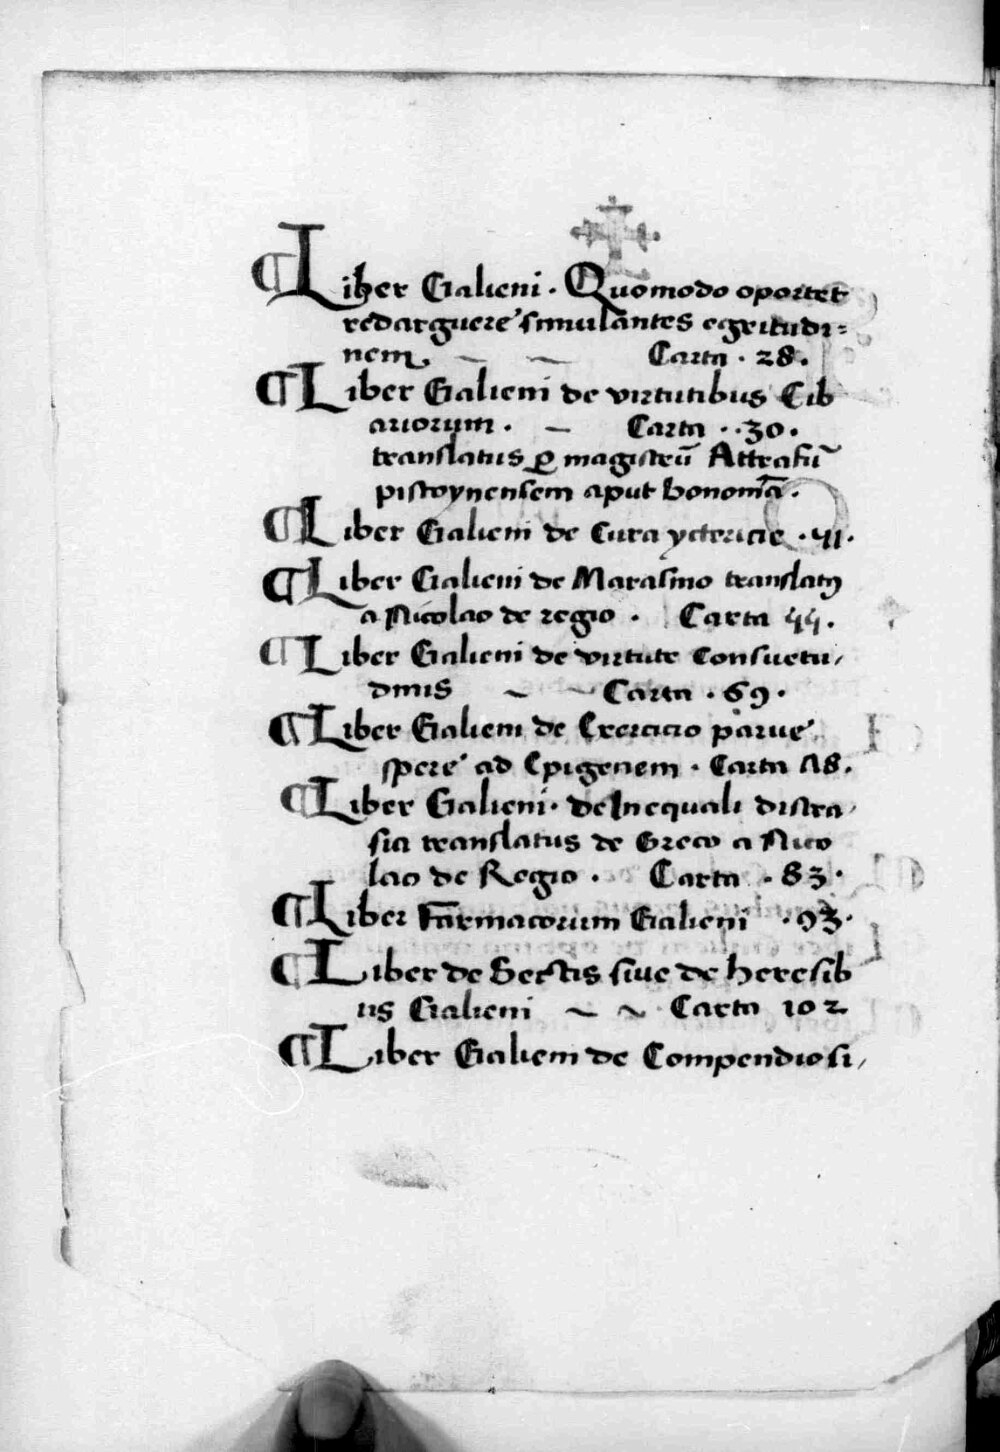 ¶ Liber Galieni · Quomodo oportet
redarguere simulantes egritudi=
nem. ~ ~ Carta · 28.
¶ Liber Galieni de virtutibus Cib
ariorum · ~ Carta · 30 ·
translatus ꝑ magistrū
pistoynensem aput bononiā ·
¶ Liber Galieni de Cura yctericie · 41 ·
¶ Liber Galieni de Marasmo translatꝰ
a Nicolao de regio · Carta 44 ·
¶ Liber Galieni de virtute Consuetu/
dinis ~ ~ Carta · 69 ·
¶ Liber Galieni de Exercicio parue
spere ad Epigenem · Carta 78 ·
¶ Liber Galieni · de Inequali distra/
sia translatus de Greco a Nico
lao de Regio · Carta · 83 ·
¶ Liber Farmacorum Galieni · 93 ·
¶ Liber de Sectis siue de heresib
us Galieni ~ ~ Carta 102
¶ Liber Galieni de Compendiosi/